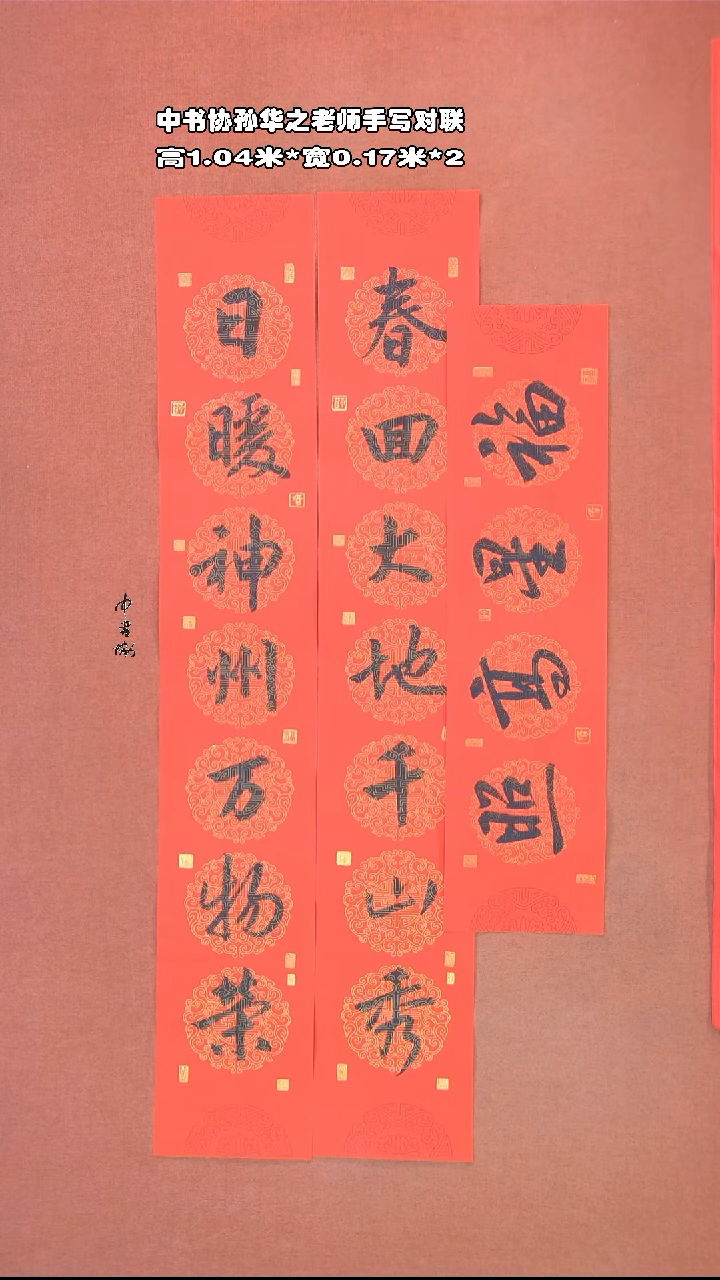 中书协孙华之老师手写对联
高1.04米*宽0.17米*2
福星高照
春回大地千山秀
日暖神州万物荣